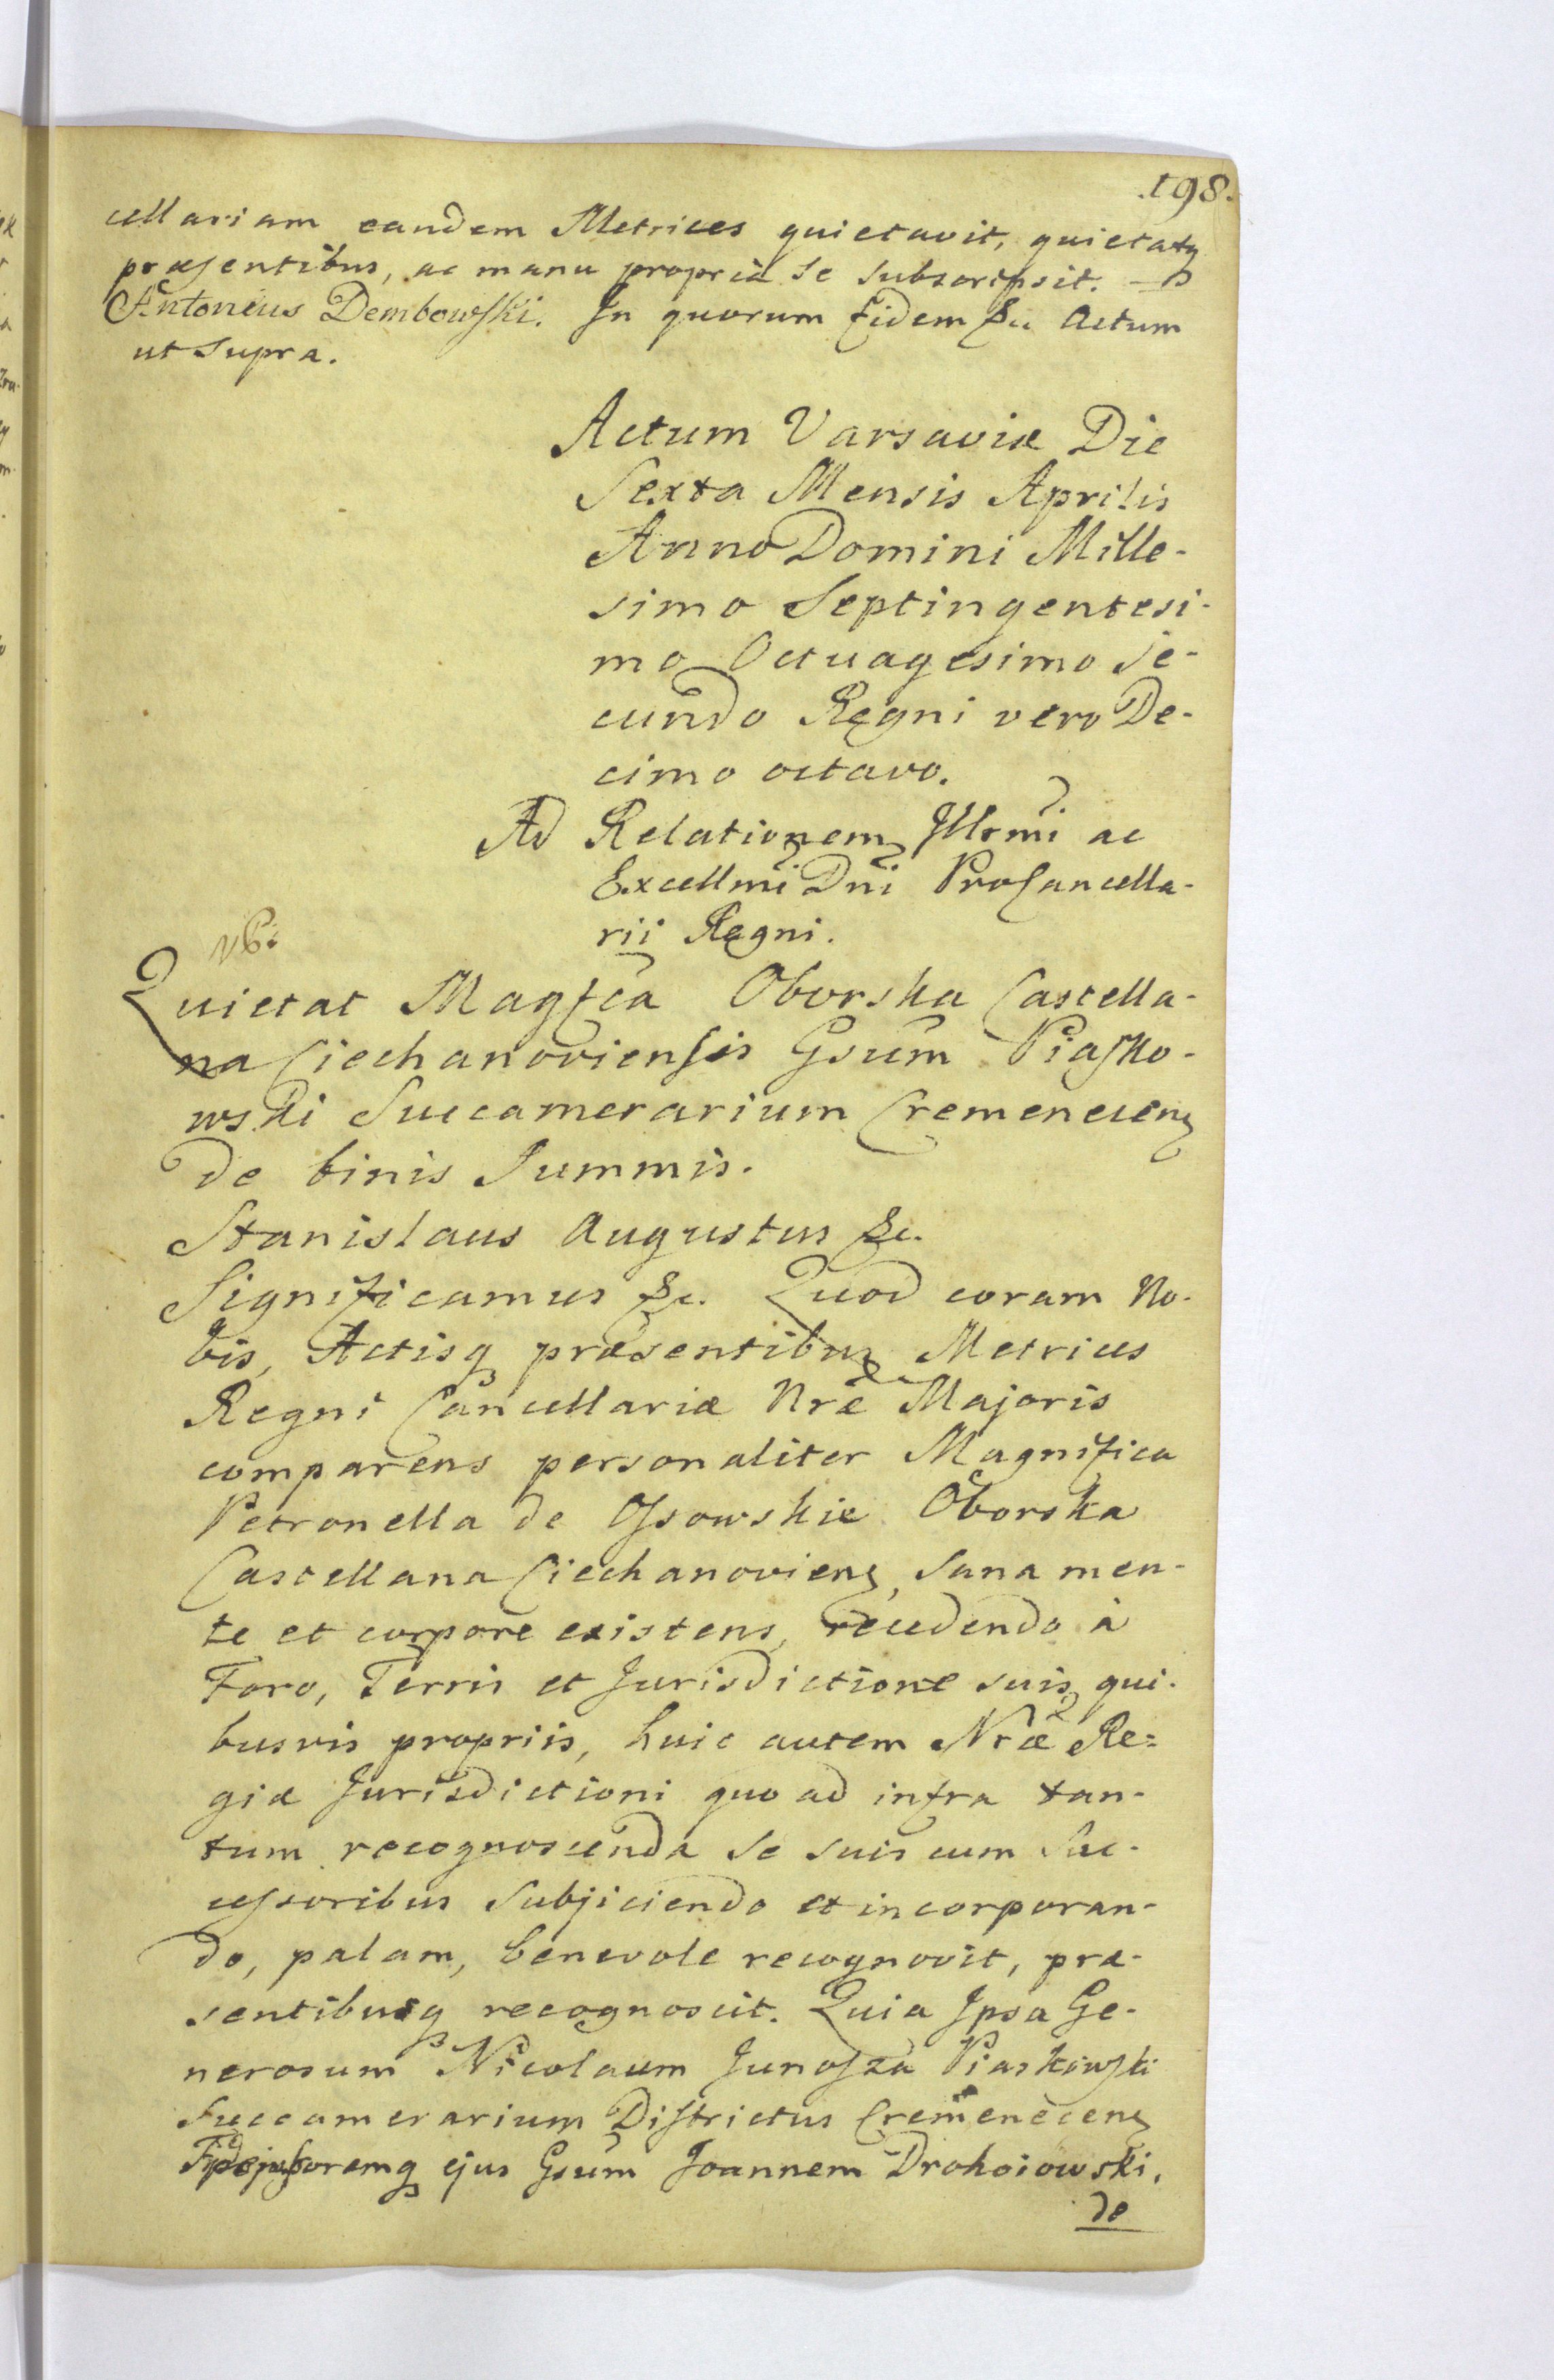 .198.
cellariam eandem Metrices quietavit, quietatq
præsentibus, ac manu propria se subscripsit.
Antonius Dembowski. In quorum Fidem &c Actum
ut Supra.
Actum Varsaviæ Die
Sexta Mensis Aprilis
Anno Domini Mille-
simo Septingentesi-
mo Octuagesimo Se-
cundo Regni vero De-
cimo octavo.
Ad Relationem Illrmi ac
Excellmi Dni ProCancella-
rii Regni.
Quietat Magfca Oborska Castella-
na Ciechanoviensis Gsum Piasko-
wski Succamerarium Cremenecens
de binis Summis.
Stanislaus Augustus &c.
Significamus &c. Quod coram No-
bis, Actisq præsentibus Metrices
Regni Cancellariæ Nræ Majoris
comparens personaliter Magnifica
Petronella de Ossowskie Oborska
Castellana Ciechanoviens, sana men-
te et corpore existens, recedendo à
Foro, Terris et Jurisdictione suis qui-
busvis propriis, huic autem Nræ Re=
giæ Jurisdictioni quo ad infra tan-
tum recognoscenda se suis cum Suc-
cessoribus Subjiciendo et incorporan-
do, palam, benevole recognovit, præ-
sentibusq recognoscit. Quia Ipsa Ge-
nerosum Nicolaum Junosza Piaskowski
Succamerarium Districtus Cremenecens
Fidejussoremq ejus Gsum Joannem Drohoiowski,
de